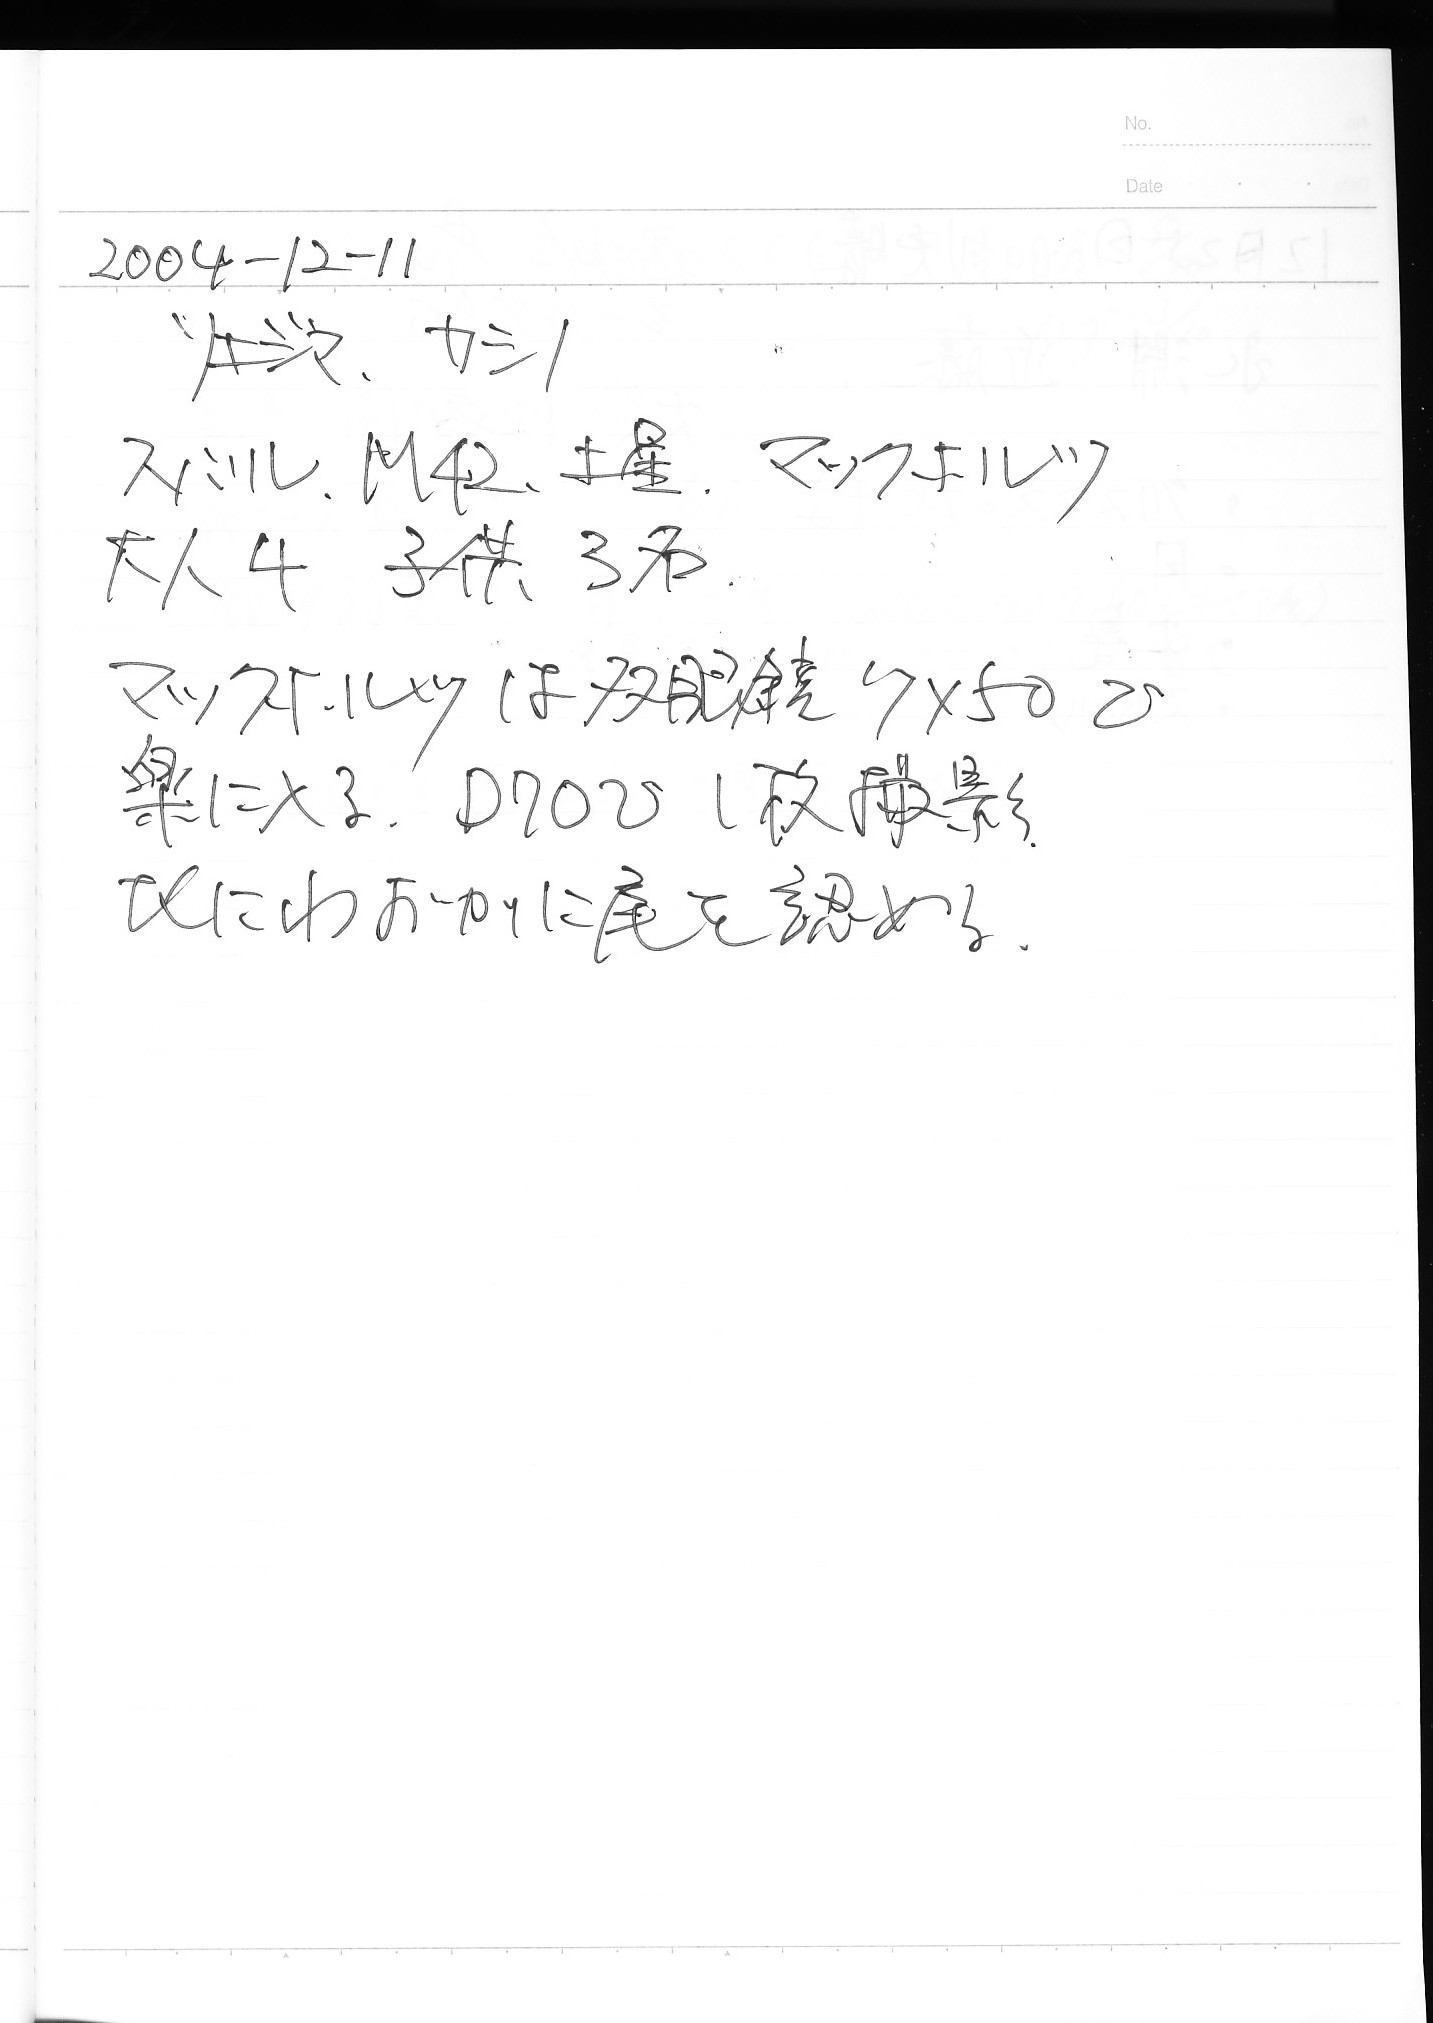 No.
Date
2004-12-11
カシノ
スバル、M42、土星、マックホルツ
大人4 子供 3名.
マックホルツは双眼鏡 7×50で
楽に入る. D70で1枚撮影.
北にわずかに尾を認める.